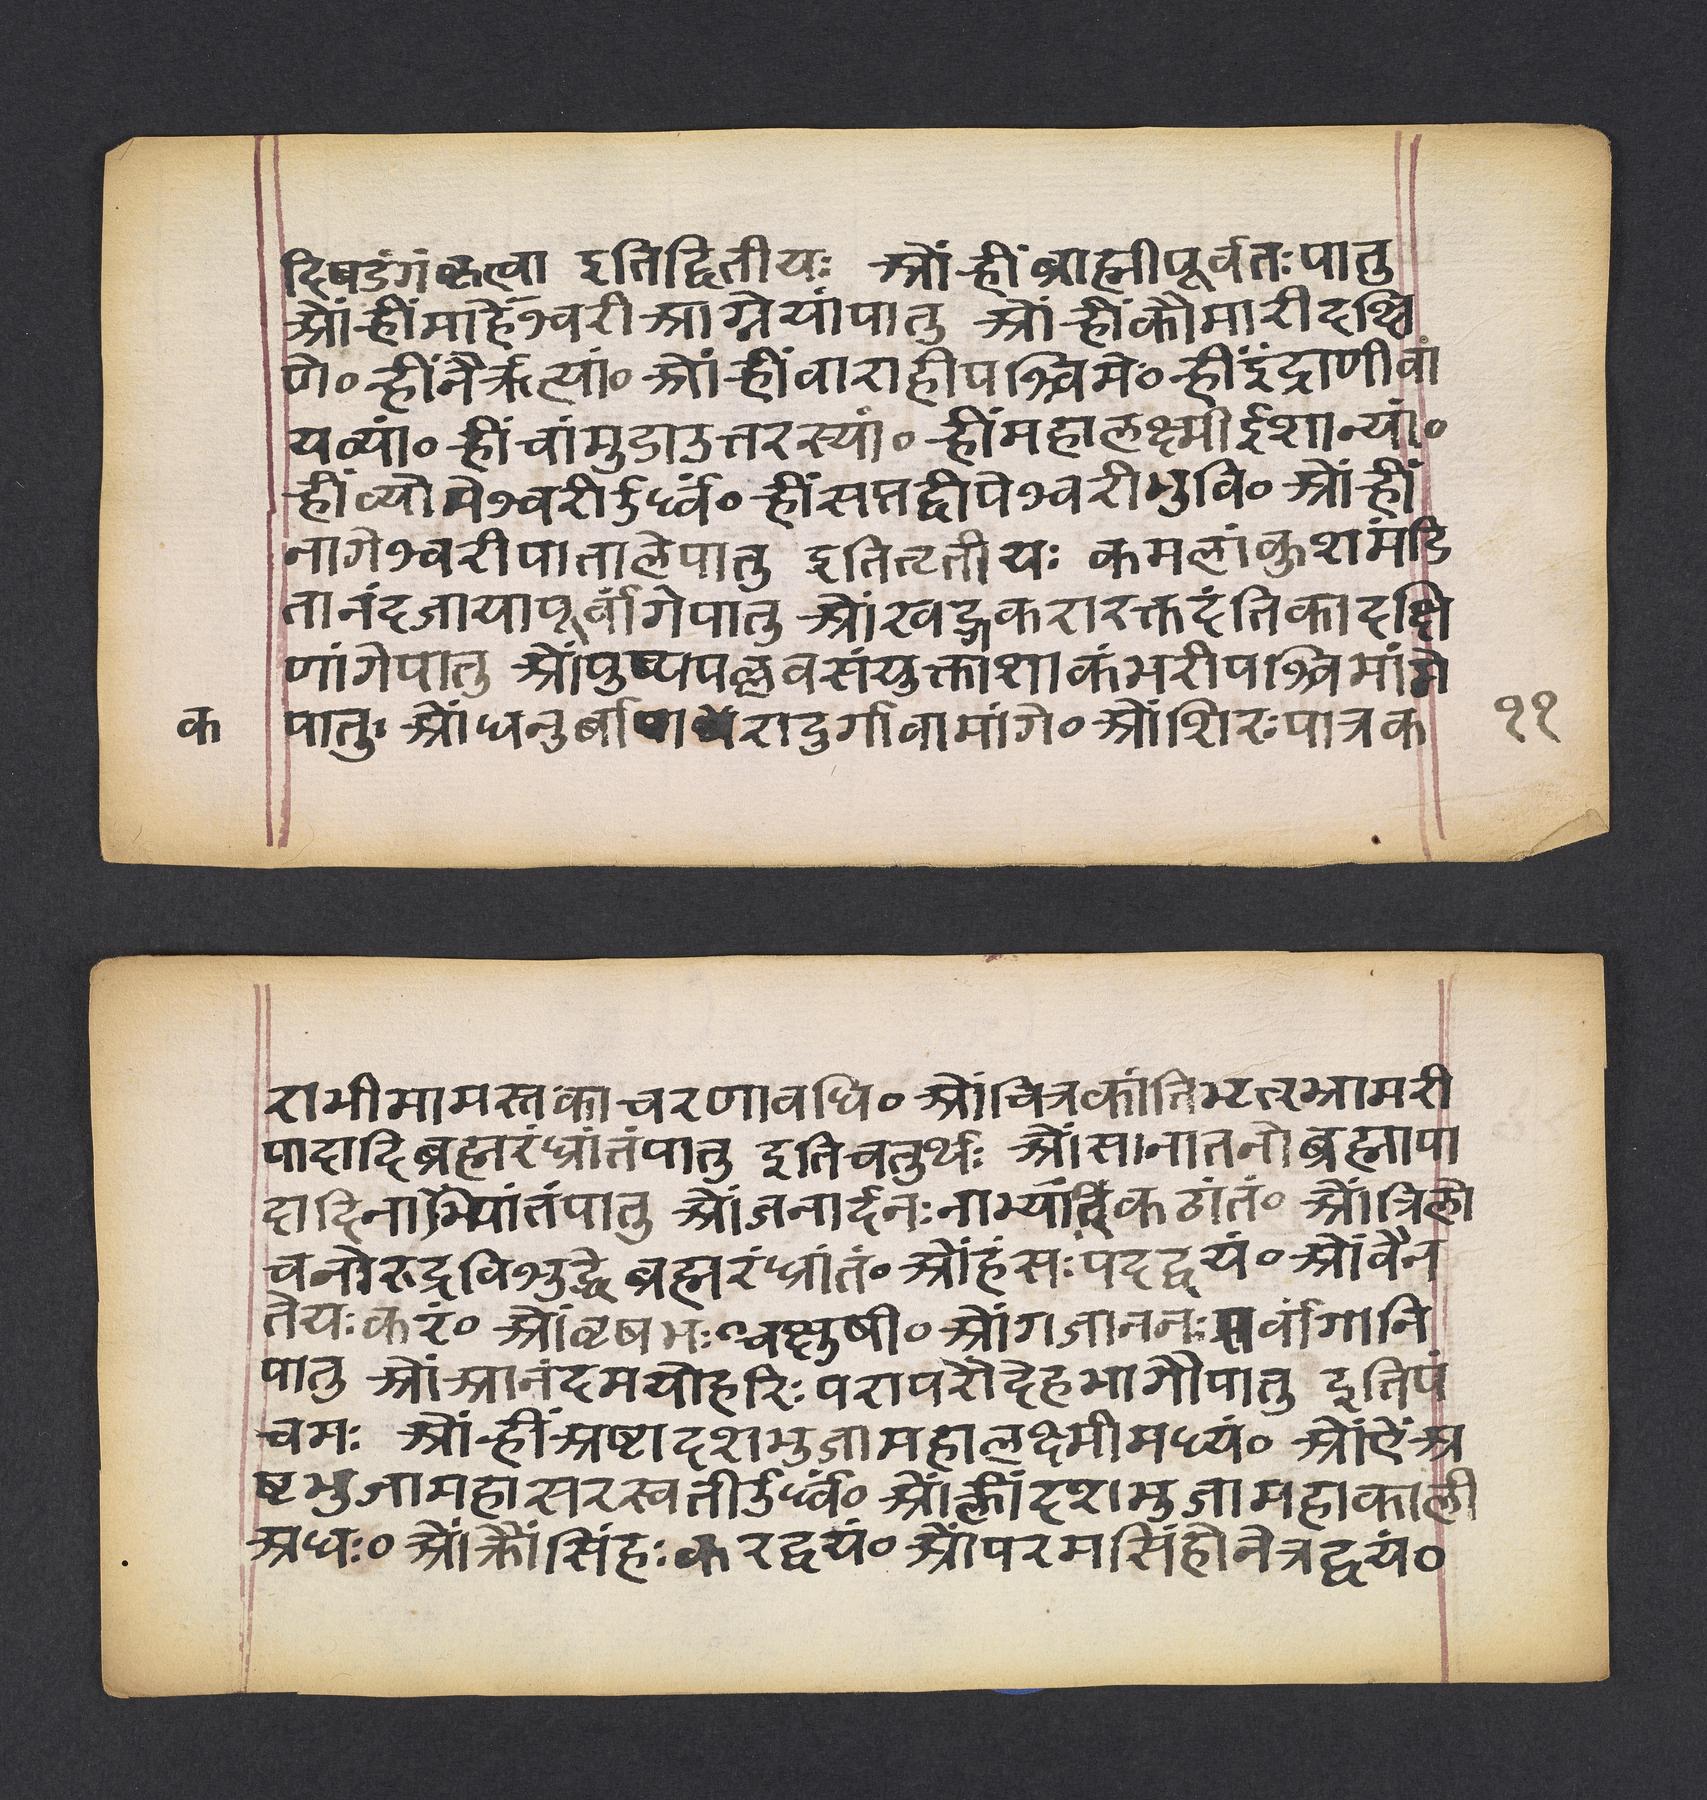 दिषडंगंकृत्वा इतिद्वितीयः ओं ह्रींब्राह्मीपूर्वतःपातु
ओंह्रींमाहेश्वरीआग्नेयांपातु ओंह्रींकौमारीदक्षि
णे० ह्रींनैर्ऋत्यां० ओंह्रींवाराहीपश्चिमे० ह्रींइंद्राणीवा
यव्यां० ह्रींचांमुडाउत्तरस्यां० ह्रींमहालक्ष्मीईशान्यां०
ह्रींव्योमेश्वरीर्उर्ध्वं० ह्रींसप्तद्वीपेश्वरीभुवि० ओंह्रीं
नागेश्वरीपातालेपातु इतितृतीयः कमलांकुशमंडि
तानंदजायापूर्वांगेपातु ओंखड्गकरारक्तदंतिकादक्षि
णांगेपातु ओंपुष्पपल्लवसंयुक्ताशाकंभरीपश्चिमांगे
क पातु ओंधनुर्बाणधरादुर्गावामांगे० ओंशिरःपात्रक ११
राभीमामस्तकाचरणावधि० ओंचित्रकांतिभृत्भ्रामरी
पादादिब्रह्मरंध्रांतंपातु इतिचतुर्थः ओंसानातनोब्रह्मापा
दादिनाभिपांतंपातु ओंजनार्दनःनाभ्यादिकठांतं० ओंत्रिलो
चनोरुद्रविशुद्धेब्रह्मरंध्रांतं० ओंहंसःपदद्वयं० ओंवैन
तेयःकरं० ओंवृषभःचक्षुषी० ओंगजाननःसर्वांगानि
पातु ओंआनंदमयोहरिःपरापरौदेहभागौपातु इतिपं
चमः ओंह्रींअष्टादशभुजामहालक्ष्मीमध्यं० ओंऐंअ
ष्टभुजामहासरस्वतीर्उर्ध्वं० ओंक्लींदशभुजामहाकाली
अधः० ओंक्रौंसिंहःकरद्वयं० ओंपरमसिंहोनेत्रद्वयं०